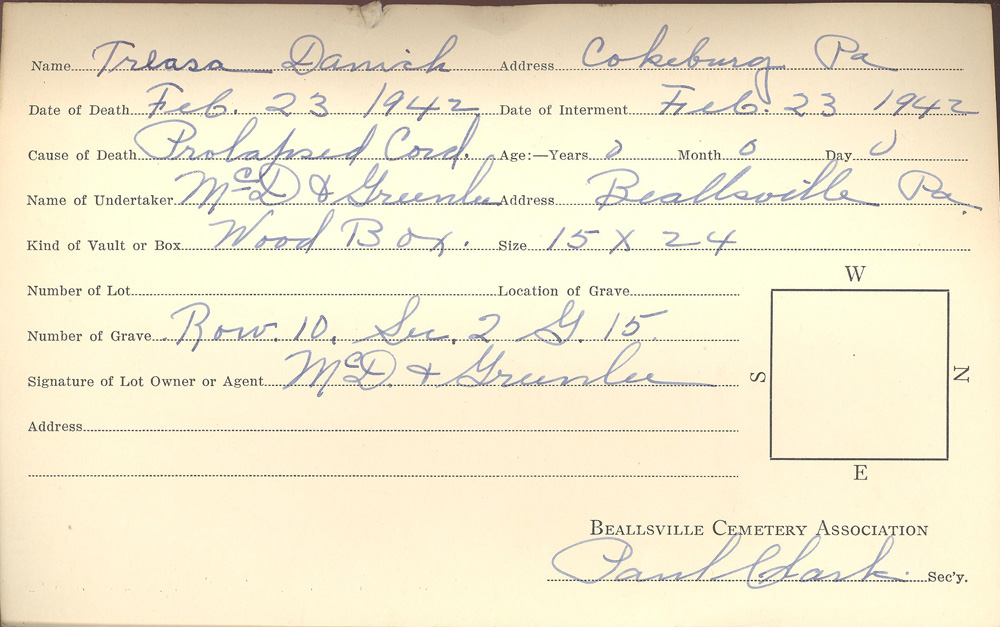 Name Treasa Danich Address Cokeburg Pa
Date of Death Feb. 23 1942 Date of Interment Feb. 23 1942
Cause of Death Prolapsed Cord. Age:—Years 0 Month 0 Day 0
Name of Undertaker McD & Greenlee Address Beallsville Pa.
Kind of Vault or Box Wood Box. Size 15 X 24
Number of Lot Location of Grave
Number of Grave Row. 10. Sec. 2 G. 15
Signature of Lot Owner or Agent McD. & Greenlee
Address
W
S
N
E
BEALLSVILLE CEMETERY ASSOCIATION
Paul Clark. Sec'y.